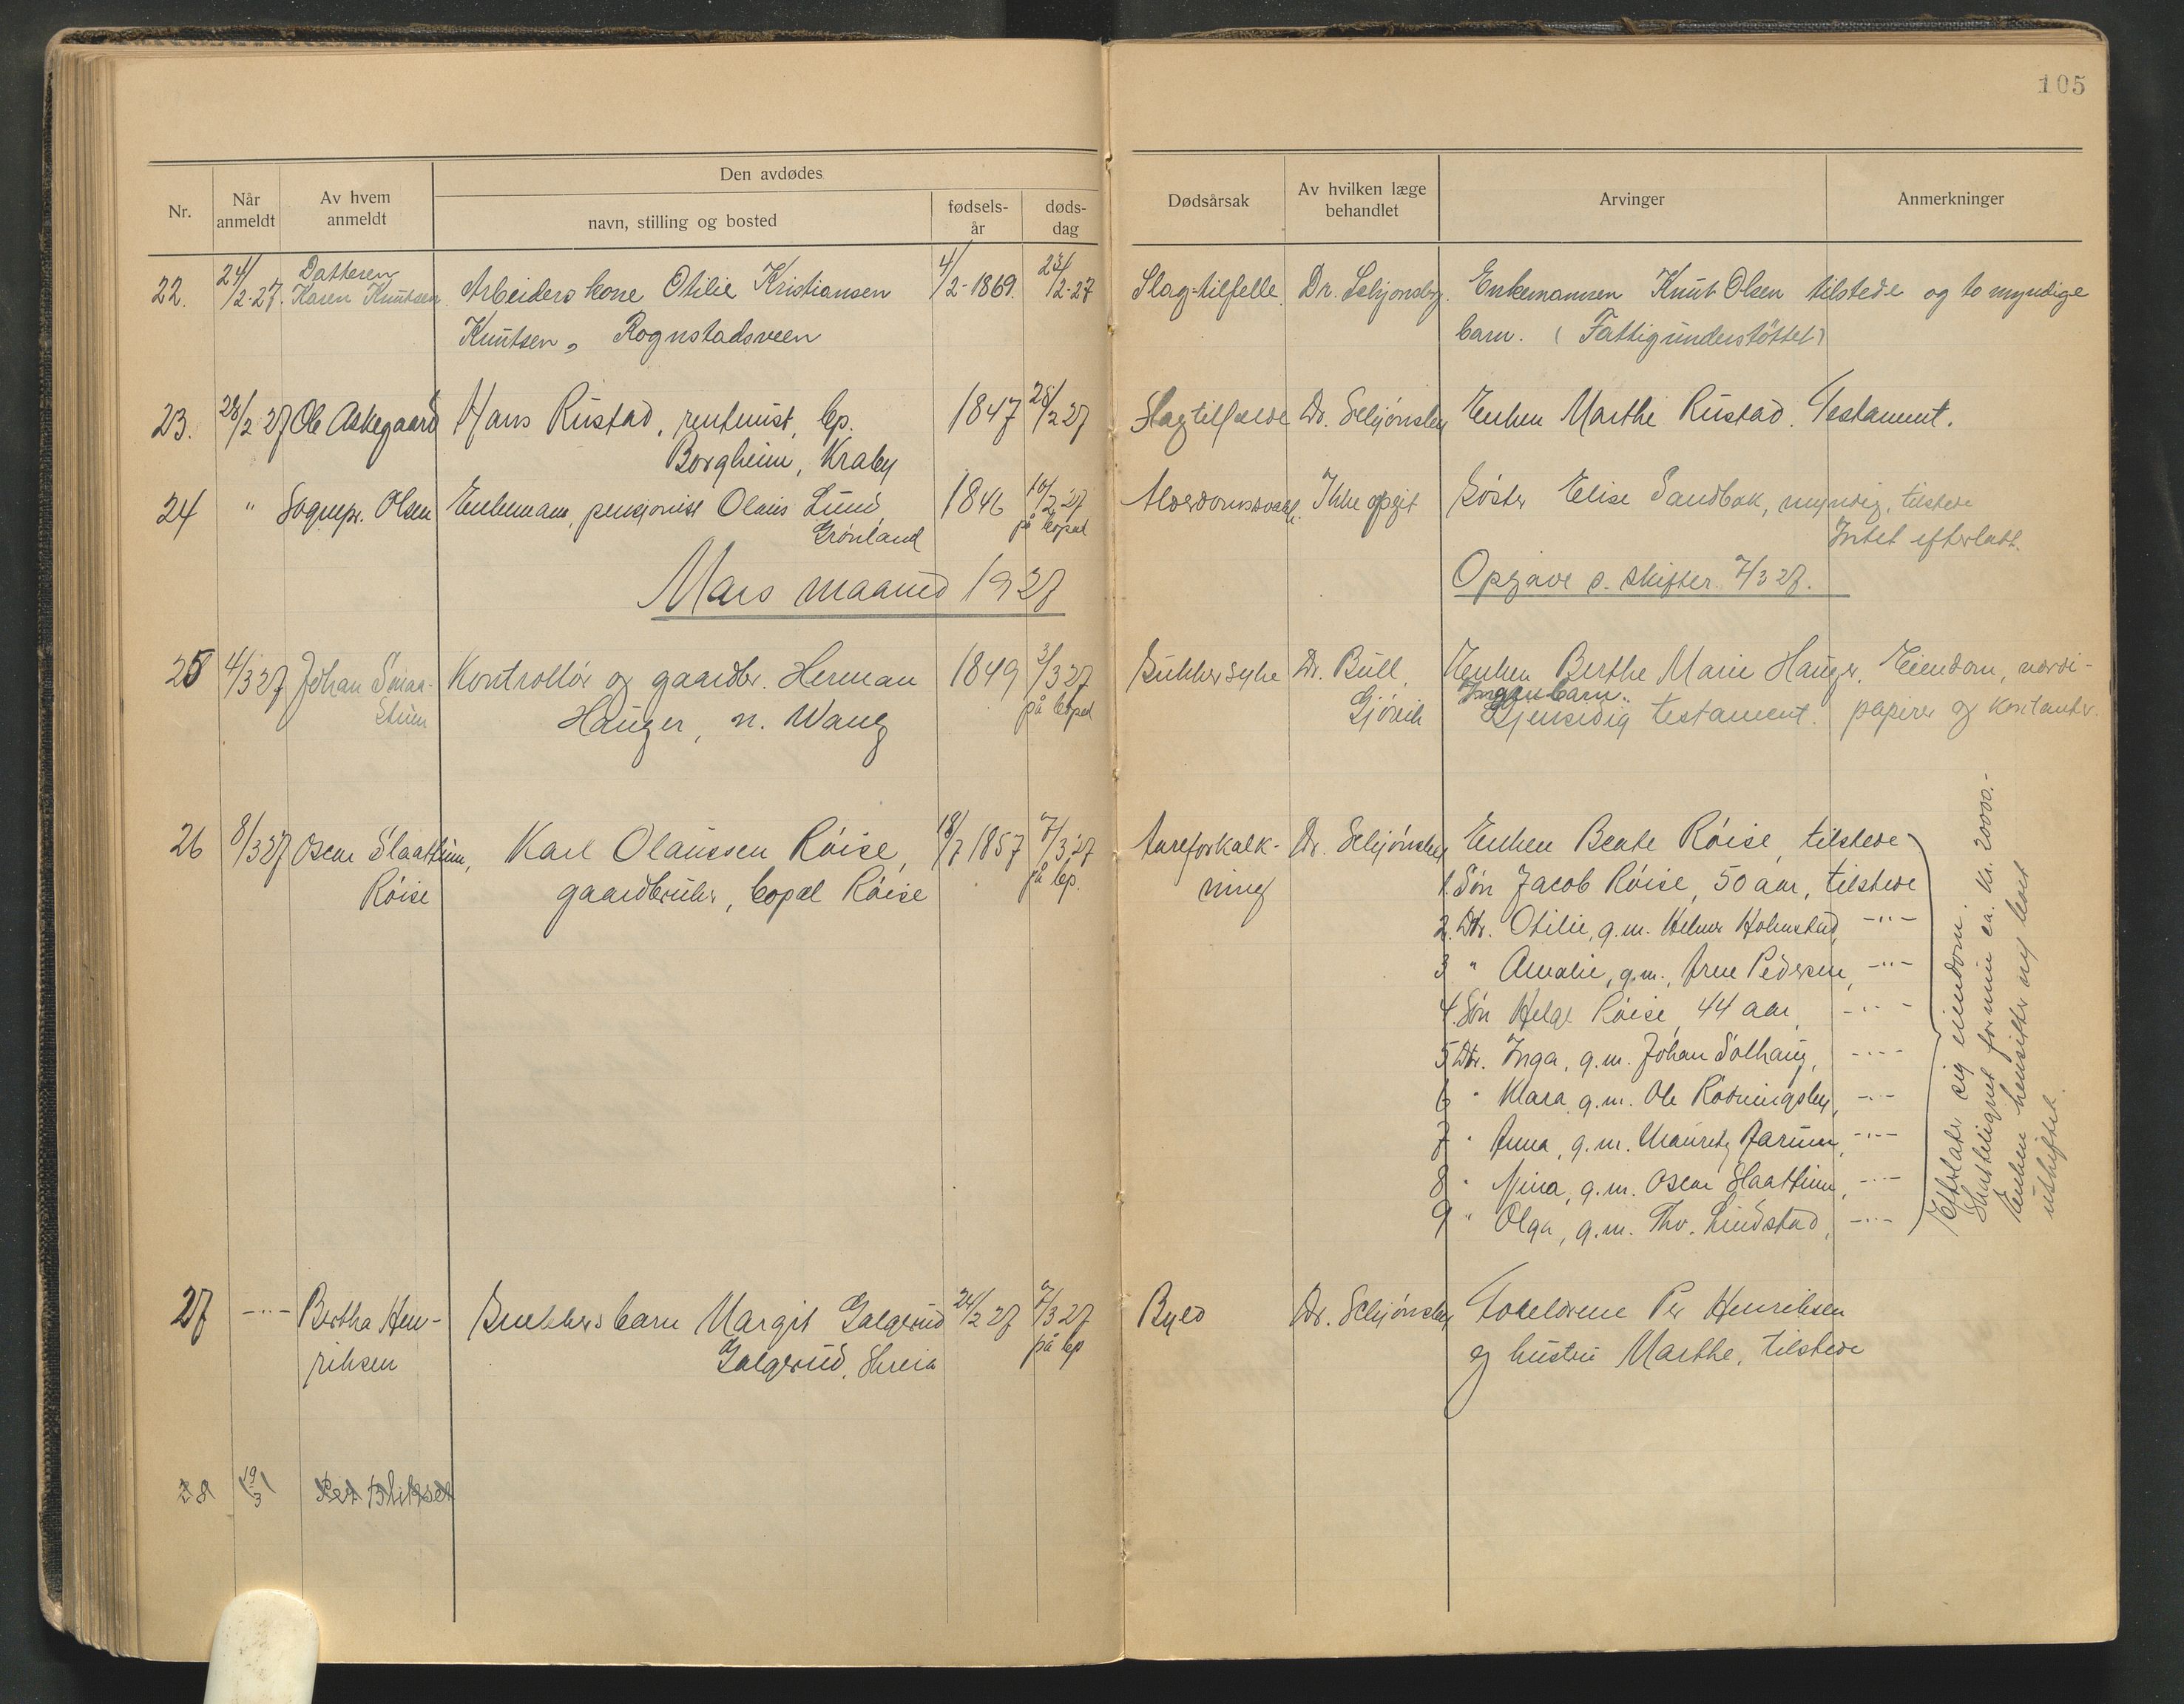 105
Nr.
Når anmeldt
Av hvem anmeldt
Den avdødes
navn, stilling og bosted
fødsels-år
døds-dag
Dødsårsak
Av hvilken læge behandlet
Arvinger
Anmerkninger
22. 24/2-27. Datteren Karen Knutsen Arbeiders kone Otilie Kristiansen 4/2-1869. 23/2-27 Slag-tilfelle. Dr. Selsjonsby. Enkemannen Knut Olsen tilstede og to myndige
Knutsen, Rognstadsveen barn. (Fattigunderstöttet)
23. 28/2 27 Ole Askegaard Hans Rustad, rentenist, bp. 1847 28/2 27 Slagtilfælde Dr. Selsjónsby Enken Marthe Rustad. Testament.
Borgheim, Kraby
24 " Sognepr. Olsen Enkemann, pensjonist Olaus Lund 1846 10/2 27 Alderdomssvakh. Ikke opgit Söster Elise Sandbak, myndig, tilstede
Grönland på bopæl Intet efterlatt.
Mars maaned 1927 Opgave s. skifter 7/3 27.
25 4/3 27 Johan Smaa- Kontrollör og gaardbr. Herman 1849 3/3 27 Sukkersyke Dr. Bull, Enken Berthe Marie Hauger. Eiendom, verdi-
stuen Hauger, n. Wang på bopæl Gjövik Ingen barn. Gjensidig testament. papirer og kontanter.
26 8/3 27 Oscar Slaattum, Karl Olaussen Röise, 18/7 1857 7/3 27 Aareforkalk- Dr. Selsjónsby Enken Beate Röise, tilstede
Röise gaardbruker, bopæl Röise på bp. ning 1. Sön Jacob Röise, 50 aar, tilstede
2. Dtr. Otilie, g.m. Helmer Holmstad, -"-
3 " Amalie, g.m. Arne Pedersen, -"-
4. Sön Helge Röise, 44 aar, -"-
5 Dtr. Inga, g.m. Johan Solhaug, -"-
6 " Klara, g.m. Ole Rödningsby, -"-
7 " Anna, g.m. Mauritz Farum, -"-
8 " Mina, g.m. Oscar Slaattum, -"-
9 " Olga, g.m. Thv. Lindstad, -"-
Efterlater sig eiendom.
Skattelignet formue ca. kr. 20000.-
Enken hensitter i boet
uskiftet.
27 -"- Bertha Hen- Brukersbarn Margit Galgerud 24/2 27 7/3 27 Byld Dr. Selsjónsby Foreldrene Per Henriksen
riksen Galgerud, Skreia på bp og hustru Marthe, tilstede
28 19/3